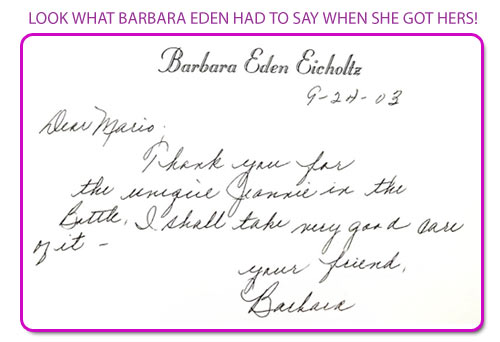 LOOK WHAT BARBARA EDEN HAD TO SAY WHEN SHE GOT HERS!
Barbara Eden Eicholtz
9-24-03
Dear Mario,
Thank you for
the unique Jeannie in the
Bottle, I shall take very good care
of it -
your friend,
Barbara